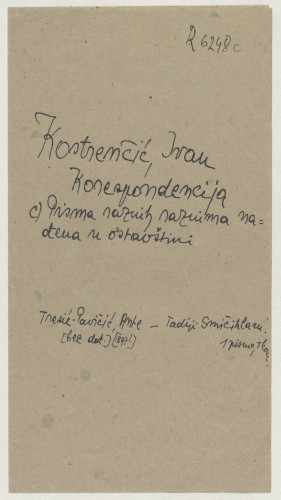 R 6248c
Kostrenčić, Ivan
Korespondencija
c) Pisma raznih raznima na=
đena u ostavštini
Tresić-Pavičić, Ante – Tadiji Smičiklasu
[bez dat.] [1897]
1 pismo,